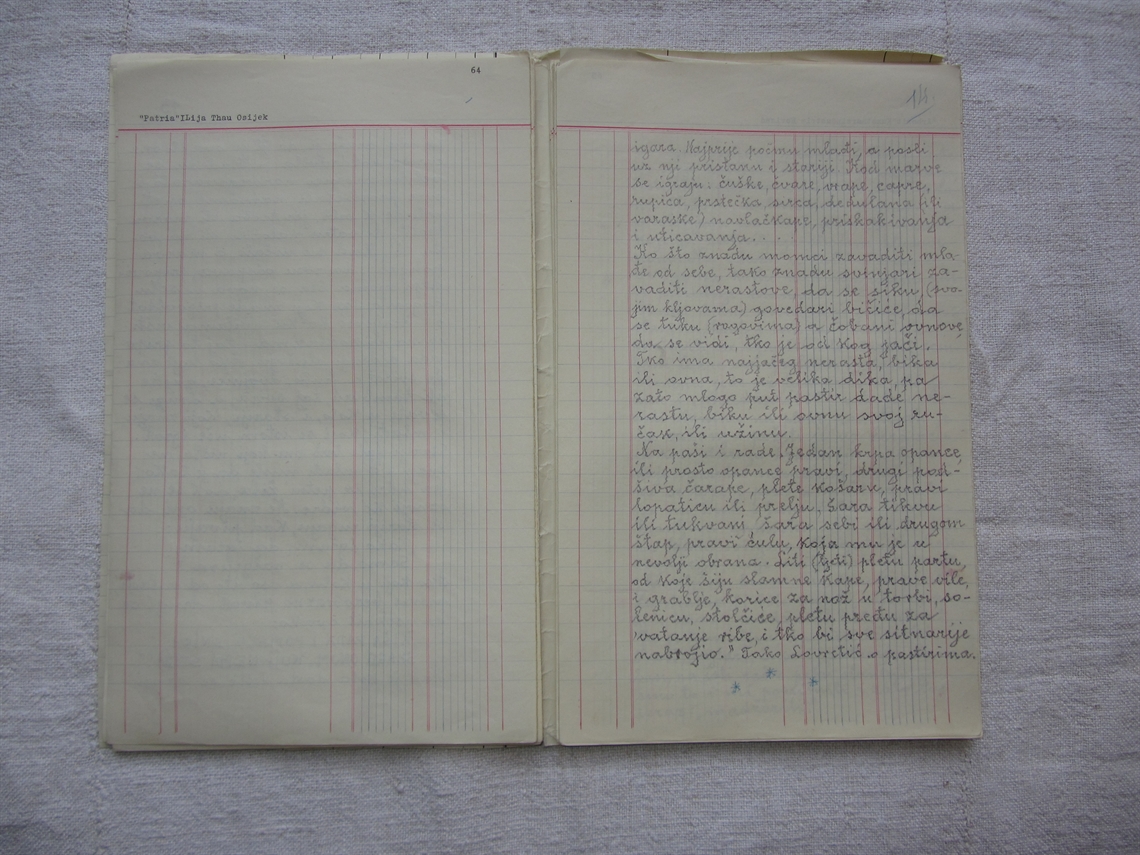 64
"Patria"ILija Thau Osijek
14
igara. Najprije počmu mlađi, a posli
uz nji pristanu i stariji. Kod marve
se igraju: čuške, čvare, vrape, capre,
rupića, prstečka, svrca, dedulana (ili
varaske) navlačkape, priskakivanja
i uticavanja. . .
Ko što znadu momci zavaditi mla-
đe od sebe, tako znadu svinjari za-
vaditi nerastove, da se siku (svo-
jim kljovama) govedari bičiće, da
se tuku (rogovima) a čobani ovnove,
da se vidi, tko je od kog jači.
Tko ima najjačeg nerasta, bika
ili ovna, to je velika dika, pa
zato mlogo put pastir dade ne-
rastu, biku ili ovnu svoj ru-
čak, ili užinu.
Na paši i rade. Jedan krpa opance,
ili prosto opance pravi, drugi pod-
šiva čarape, plete košaru, pravi
lopaticu ili prelju. Šara tikvu
ili tukvanj, šara sebi ili drugom
štap, pravi ćulu, koja mu je u
nevolji obrana. Liti (ljeti) pletu partu,
od koje šiju slamne kape, prave vile,
i grablje, korice za nož u torbi, so-
lenicu, stolčiće, pletu pređu za
vatanje ribe, i tko bi sve sitnarije
nabrojio." Tako Lovretić o pastirima.
* * *